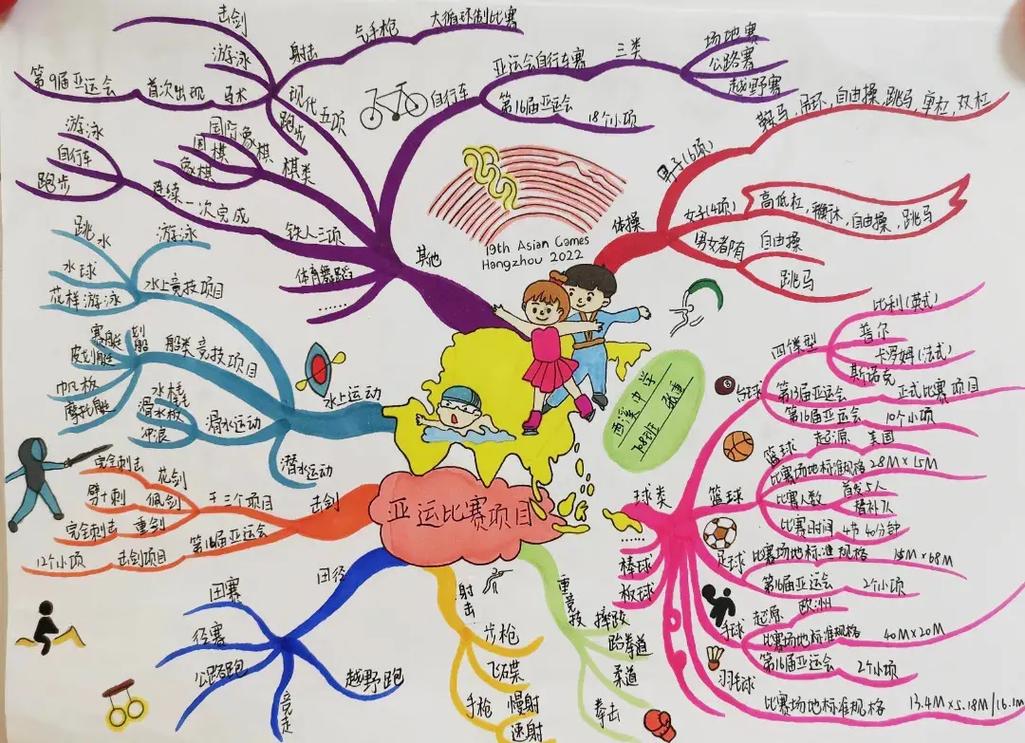 亚运比赛项目
19th Asian Games
Hangzhou 2022
其他
自行车
亚运会自行车赛
三类
场地赛
公路赛
越野赛
第16届亚运会
18个小项
现代五项
射击
气手枪
大循环制比赛
击剑
游泳
马术
首次出现
第9届亚运会
跑步
棋类
国际象棋
围棋
象棋
铁人三项
连续一次完成
游泳
自行车
跑步
体育舞蹈
……
体操
男子(6项)
鞍马,吊环,自由操,跳马,单杠,双杠
女子(4项)
高低杠,平衡木,自由操,跳马
男女都有
自由操
跳马
水上运动
水上竞技项目
跳水
游泳
水球
花样游泳
船类竞技项目
赛艇
划船
皮划艇
帆板
摩托艇
滑水运动
水橇
滑水板
冲浪
潜水运动
击剑
三个项目
花剑
完全刺击
佩剑
劈十刺
重剑
完全刺击
第16届亚运会
击剑项目
12个小项
田径
田赛
径赛
公路跑
竞走
越野跑
射击
步枪
飞碟
手枪
慢射
速射
重竞技
摔跤
跆拳道
柔道
拳击
西溪中学
708班
球类
台球
四类型
比利(英式)
普尔
卡罗姆(法式)
斯诺克
第13届亚运会
正式比赛项目
第16届亚运会
10个小项
篮球
篮球
起源
美国
比赛场地标准规格
28M×15M
比赛人数
首发5人
替补7人
比赛时间
4节40分钟
足球
比赛场地标准规格
第16届亚运会
2个小项
手球
起源
欧洲
比赛场地标准规格
40M×20M
第16届亚运会
2个小项
羽毛球
比赛场地标准规格
13.4M×5.18M/16.1m
……
棒球
板球